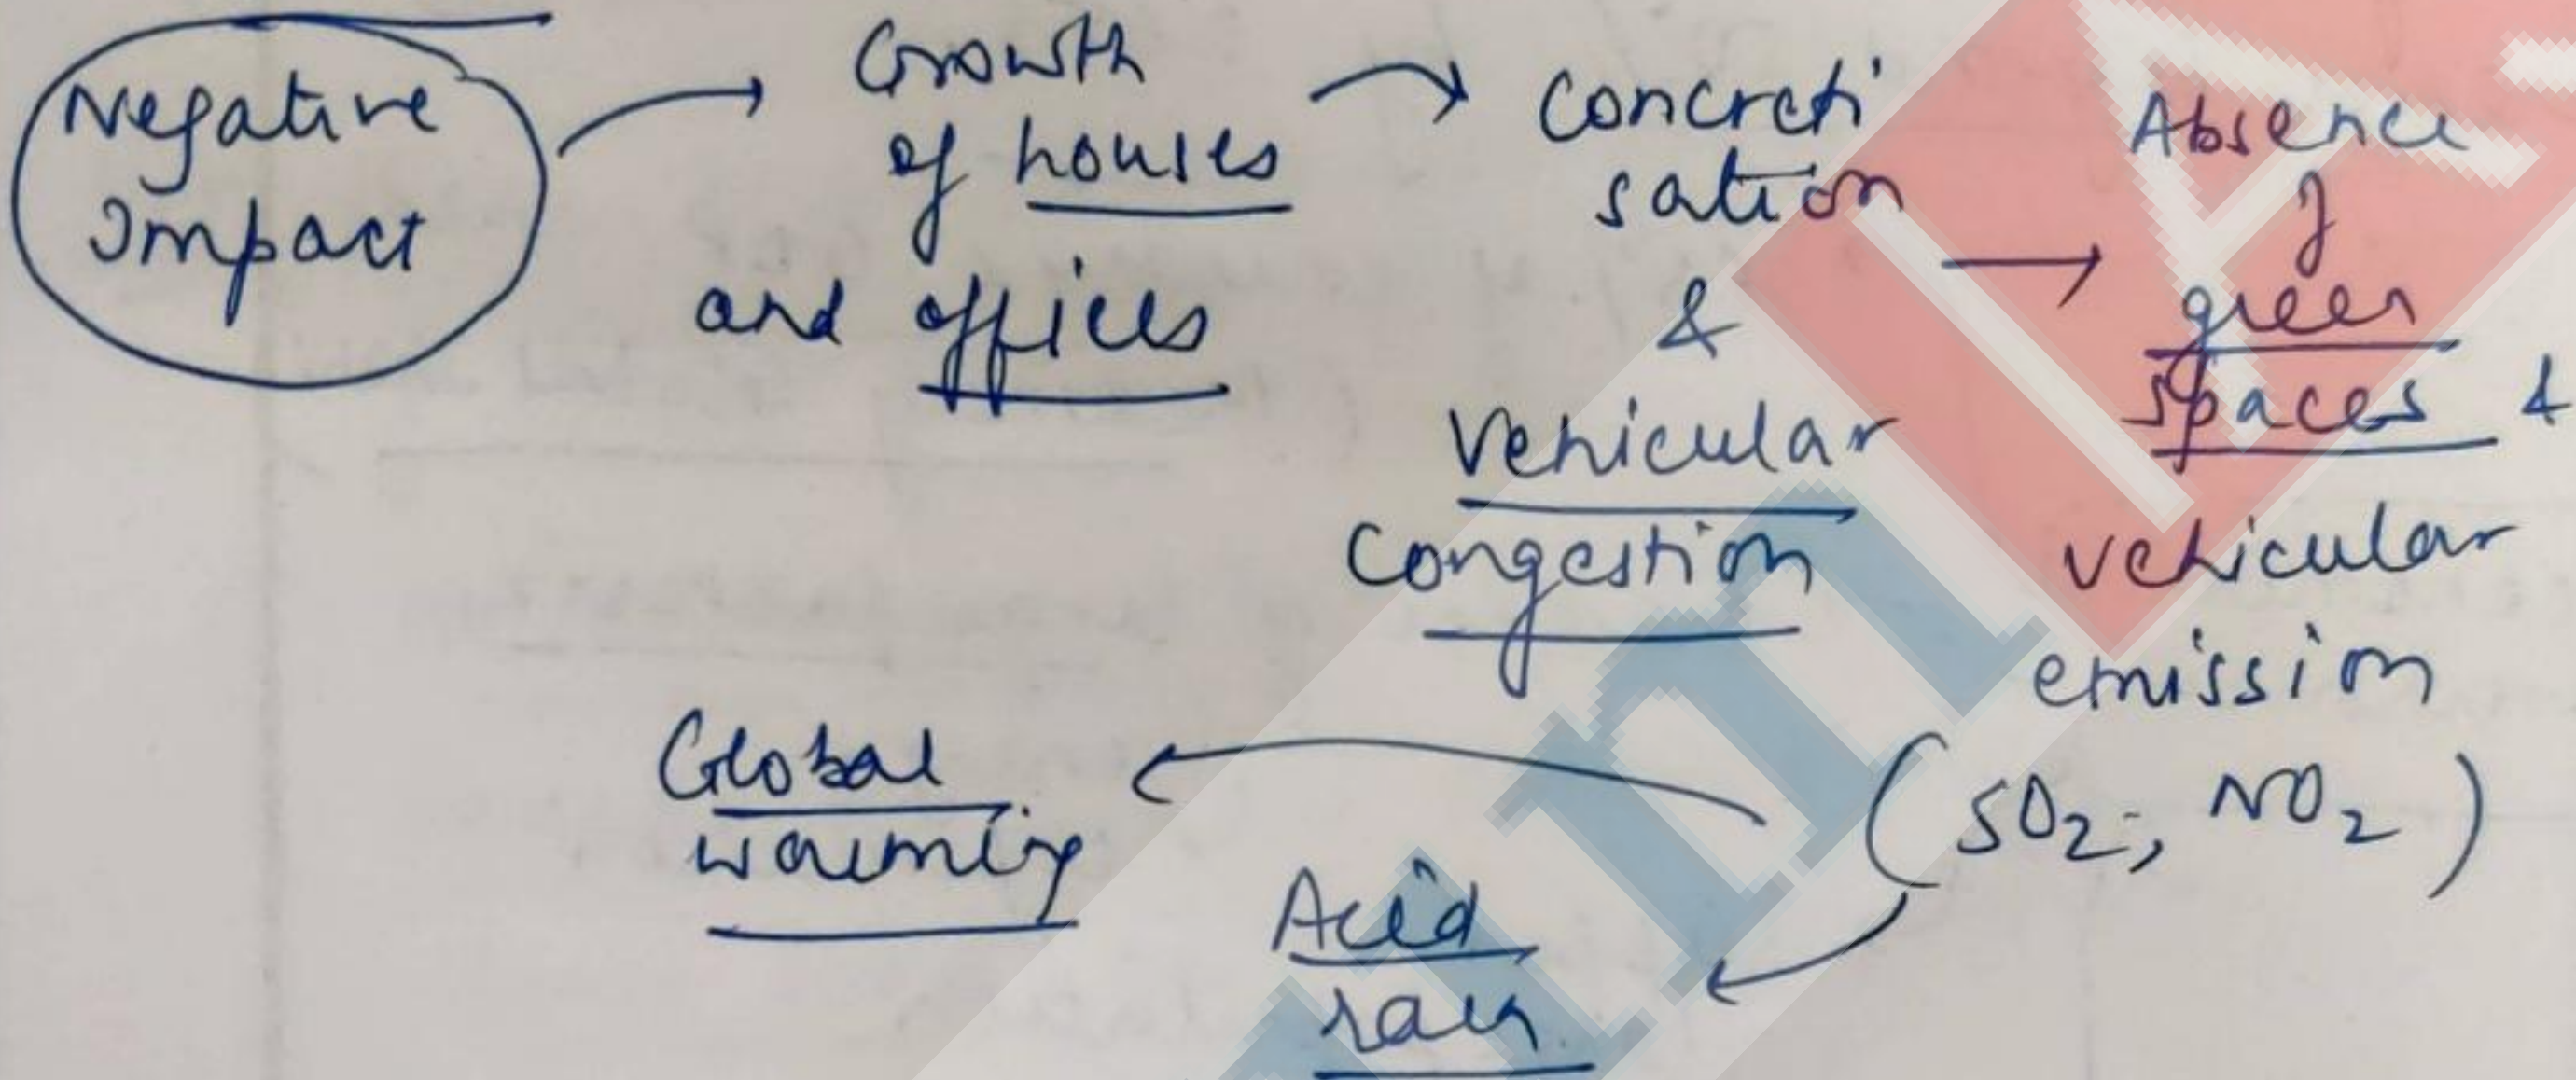 Negative
Impact
Growth
of houses
and offices
Concreti
sation
&
Vehicular
Congestion
Absence
of
green
spaces &
vehicular
emission
(SO2, NO2)
Global
warming
Acid
rain